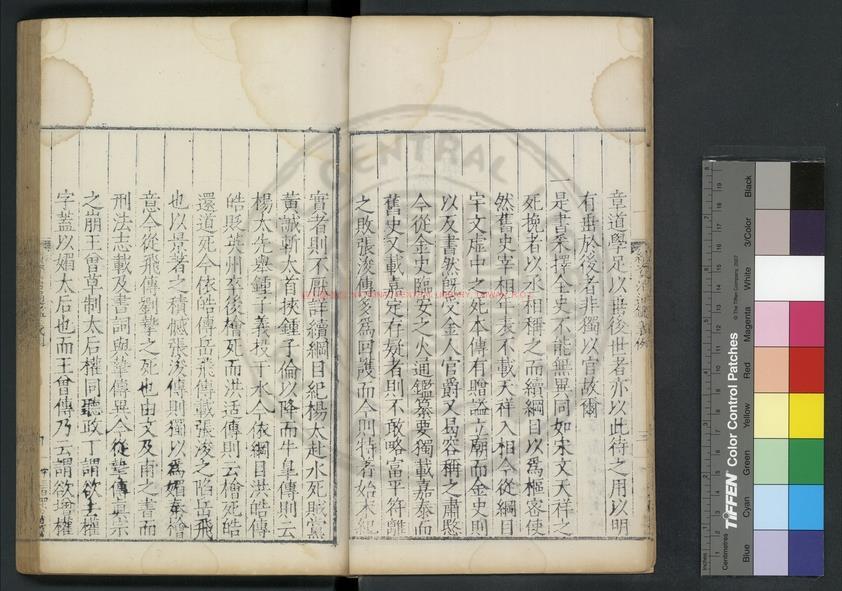 章道學足以垂後世者亦以此待之用以明
有垂於後者非獨以官故爾
一是書采擇全史不能無異同如宋文天祥之
死挽者以丞相稱之而續綱目以爲樞密使
然舊史宰相年表不載天祥入相今從綱目
宇文虛中之死本傳有贈諡立廟而金史則
以反書然旣受金人官爵又曷容稱之肅愍
今從金史臨安之火通鑑纂要獨載嘉泰而
舊史又載嘉定存疑者則不敢略富平符離
之敗張浚傳多爲回護而今則特著始末紀
實者則不厭詳續綱目紀楊太赴水死賊黨
黃誠斬太首挾鍾子倫以降而牛皐傳則云
楊太先舉鍾子義投于水今依綱目洪皓傳
皓貶英州卒後檜死而洪适傳則云檜死皓
還道死今依皓傳岳飛傳載張浚之陷岳飛
也以景著之積憾張浚傳則獨以爲媚秦檜
意今從飛傳劉摯之死也由文及甫之書而
刑法志載及書詞與摯傳異今從摯傳眞宗
之崩王曾草制太后權同聽政丁謂欲去權
字蓋以媚太后也而王曾傳乃云謂欲增權
CENTRAL
Blue
Cyan
Green
Yellow
Red
Magenta
White
3/Color
Black
TIFFEN Color Control Patches
© The Tiffen Company, 2007
Centimetres
Inches